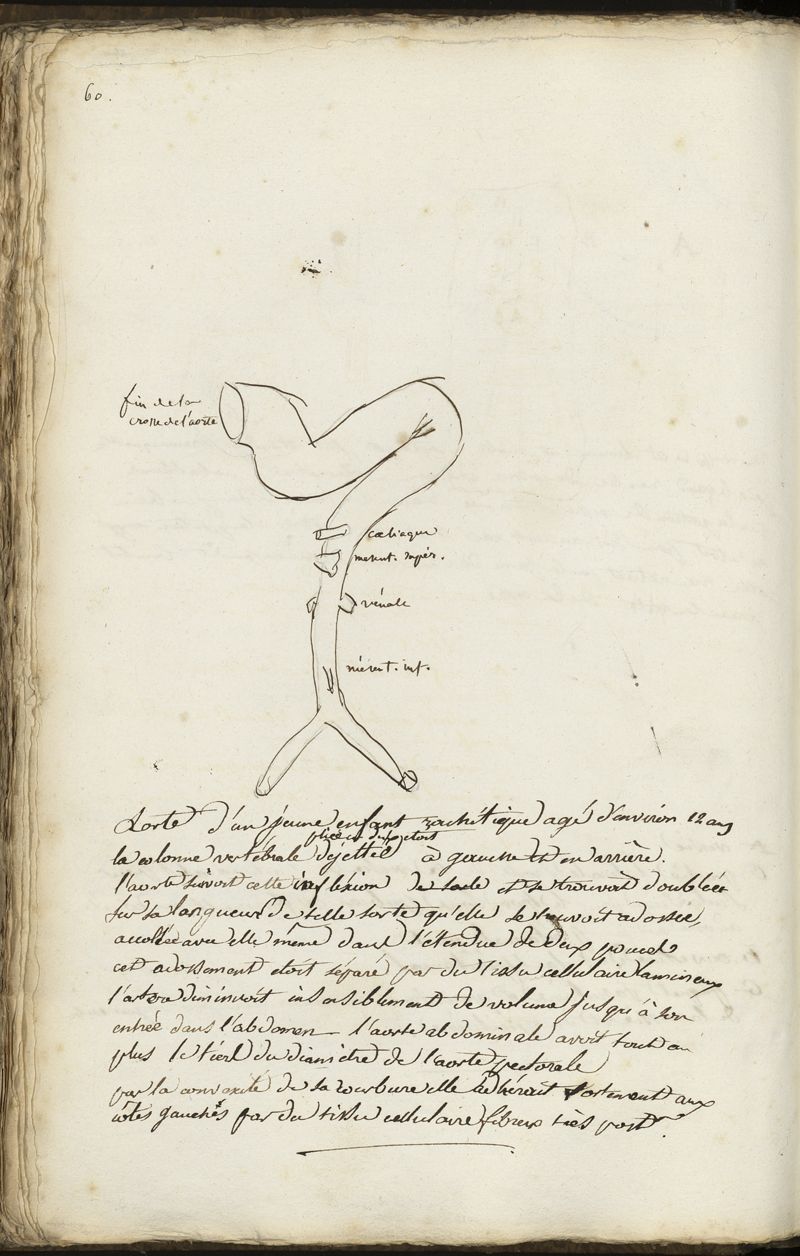 60.
fin de la
crosse de l'aorte
cœliaque
mesent. supér.
rénale
mésent. inf.
Aorte d'un jeune enfant rachitique agé d'environ 12 ans
la colonne vertébrale déjettée à gauche et en arrière.
l'aorte suivoit cette inflexion de sorte et se trouvoit doublée
sur sa longueur de telle sorte qu'elle se trouvoit adossée,
accollée avec elle même dans l'étendue de deux pouces
cet adossement etoit séparé par du tissu cellulaire lamineux
l'aorte diminuoit insensiblement de volume jusqu'à son
entrée dans l'abdomen – l'aorte abdominale avoit tout au
plus le tiers du diamètre de l'aorte pectorale
par la convexité de sa courbure elle adhéroit fortement aux
côtes gauches par du tissu cellulaire fibreux très fort.